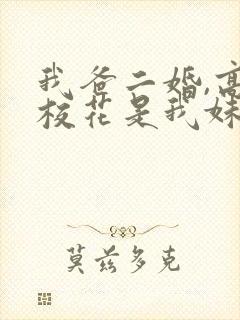 我爸二婚,高
校花是我妹
莫兹多克